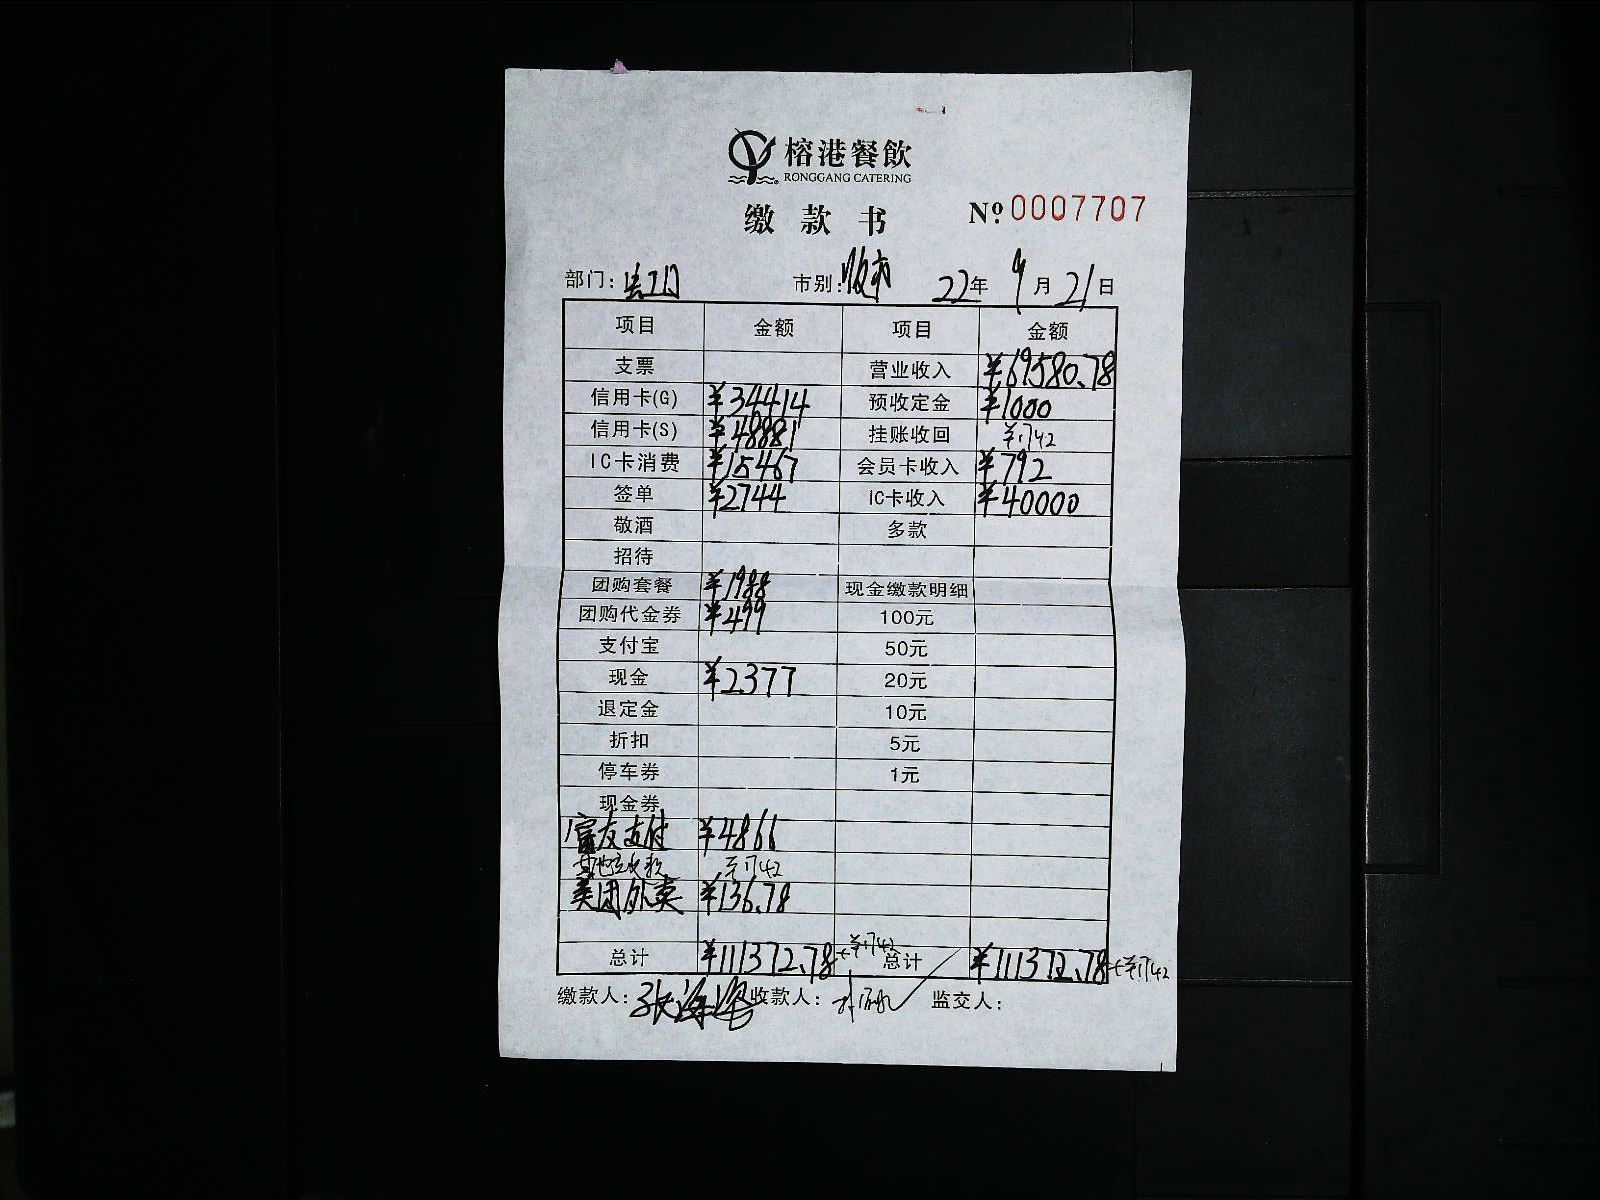 榕港餐飲
RONGGANG CATERING
缴款书
Nº 0007707
部门: 市别: 晚市 22年 9月 21日
项目 金额 项目 金额
支票 营业收入 ¥69580.78
信用卡(G) ¥34414 预收定金 ¥1000
信用卡(S) ¥48881 挂账收回 ¥1742
IC卡消费 ¥15467 会员卡收入 ¥792
签单 ¥2744 IC卡收入 ¥40000
敬酒 多款
招待
团购套餐 ¥1988 现金缴款明细
团购代金券 ¥499 100元
支付宝 50元
现金 ¥2377 20元
退定金 10元
折扣 5元
停车券 1元
现金券
富友支付 ¥4866
其他应收款 ¥1742
美团外卖 ¥136.78
总计 ¥111372.78+¥1742 总计 ¥111372.78+¥1742
缴款人: 张海 收款人: 监交人: